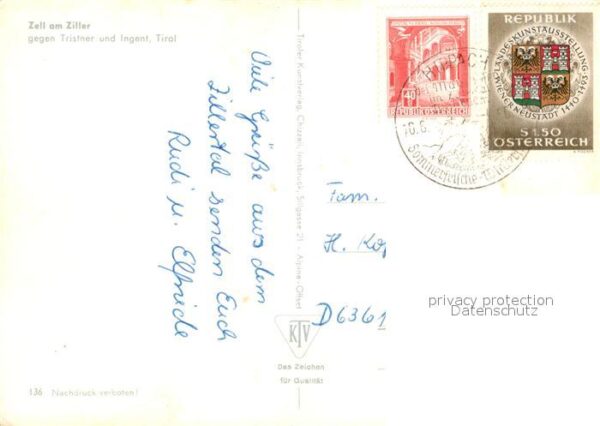 Zell am Ziller
gegen Tristner und Ingent, Tirol
Viele Grüße aus dem
Zillertal senden Euch
Rudi u. Elfriede
Tiroler Kunstverlag Chizzali, Innsbruck, Sillgasse 21 - Alpine-Offset
KTV
Das Zeichen
für Qualität
136 Nachdruck verboten!
40
REPUBLIK ÖSTERREICH
REPUBLIK
LANDESKUNSTAUSSTELLUNG
WIENER NEUSTADT 1440-1493
S 1.50
ÖSTERREICH
Sommerfrische
Fam.
H.
D6361
privacy protection
Datenschutz